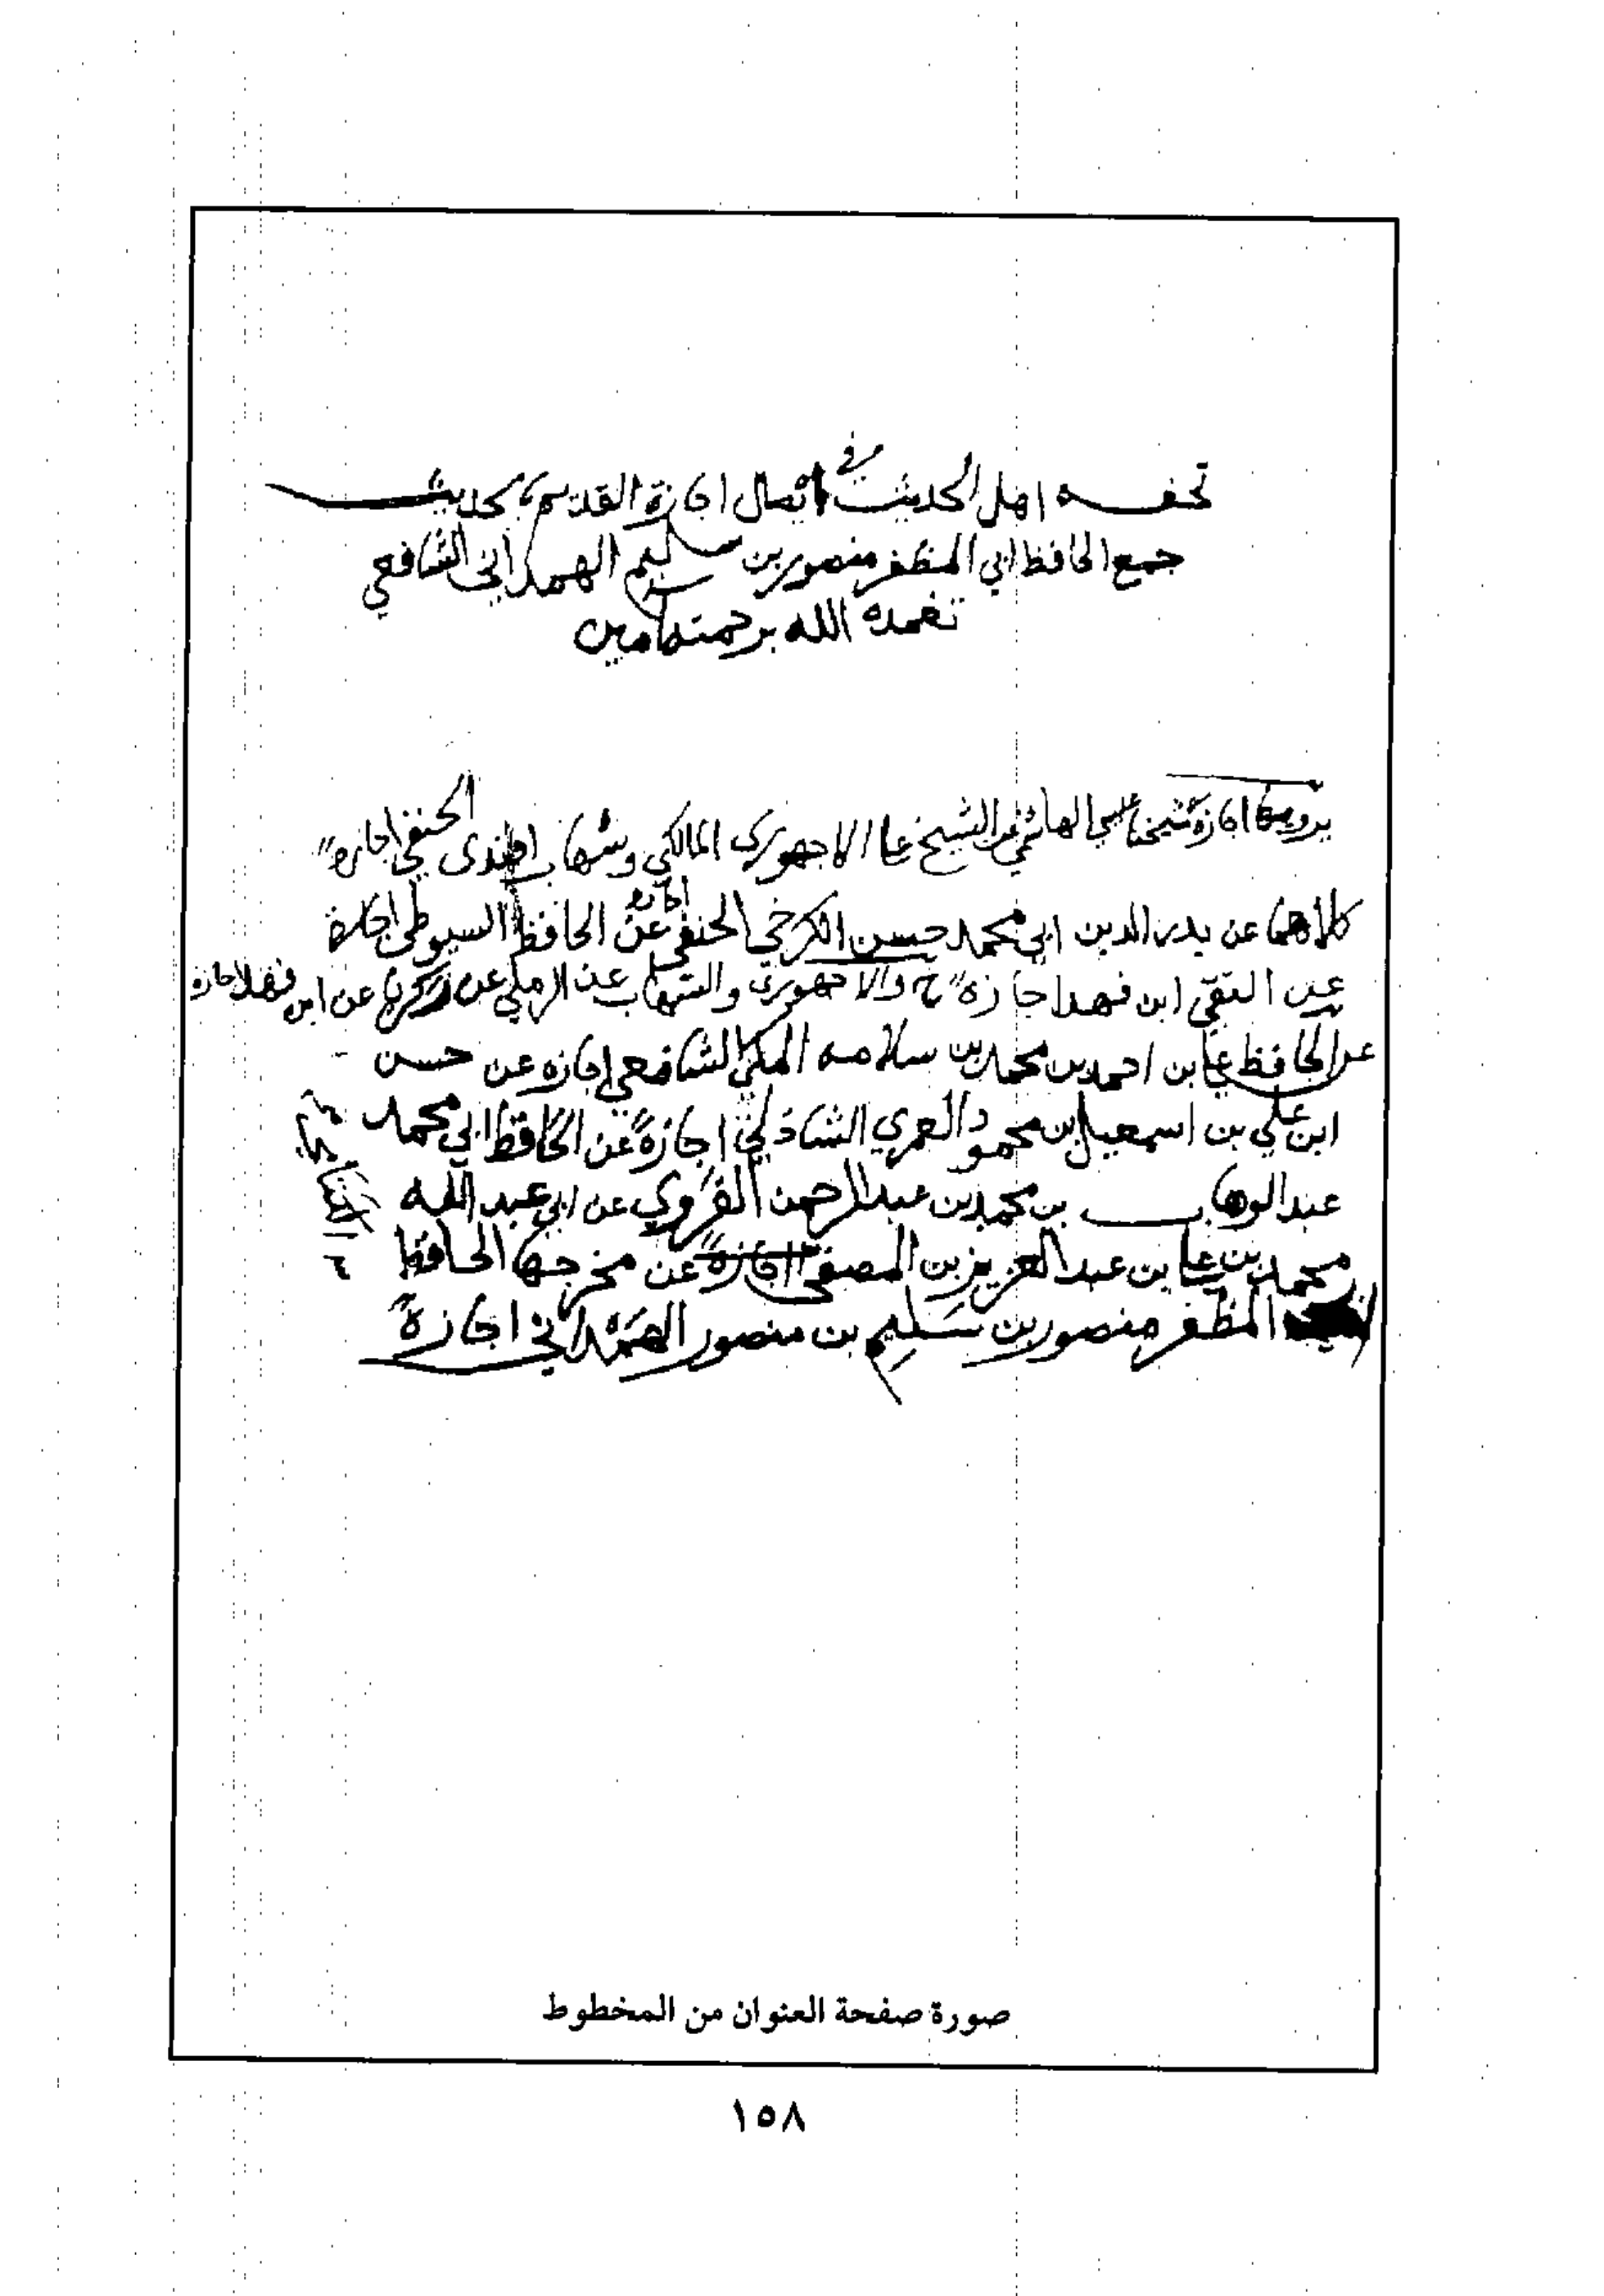 تحفه اهل الحديث في اتصال اجازة القديم بالحديث
جمع الحافظ ابي المظفر منصور بن سليم الهمداني الشافعي
تغمده الله برحمته امين
يرويها اجازة شيخنا الهاشمي عن الشيخ علي الاجهوري المالكي وشهاب افندى الحنفي اجازة
كلاهما عن بدر الدين ابي محمد حسن الكرخي الحنفي اجازه عن الحافظ السيوطي اجازة
عن التقي ابن فهد اجازة ح والاجهوري والشهاب عن الرملي عن زكريا عن ابن فهد اجازه
عن الحافظ علي بن احمد بن محمد بن سلامه المكي الشافعي اجازه عن حسن
ابن علي بن اسمعيل بن محمود العمري الشاذلي اجازة عن الحافظ ابي محمد
عبد الوهاب بن محمد بن عبد الرحمن القروي عن ابي عبد الله
محمد بن علي بن عبد العزيز بن المصفى اجازة عن مخرجها الحافظ
المظفر منصور بن سليم بن منصور الهمداني اجازة
صورة صفحة العنوان من المخطوط
١٥٨